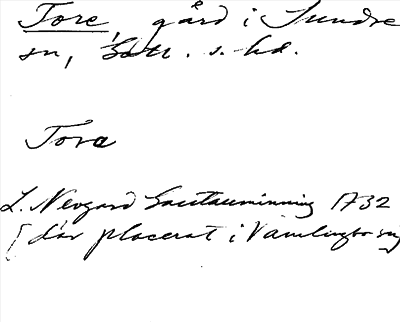 Tore, gård i Sundre
sn, Gotl. s. hd.
Tora
L. Nevgard Gautauminning 1732
[där placerat i Vamlingbo sn